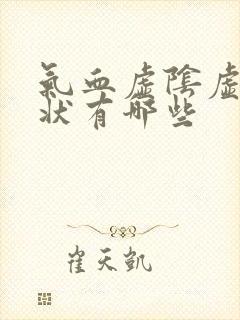 氣血虛陰虛
狀有哪些
崔天凱